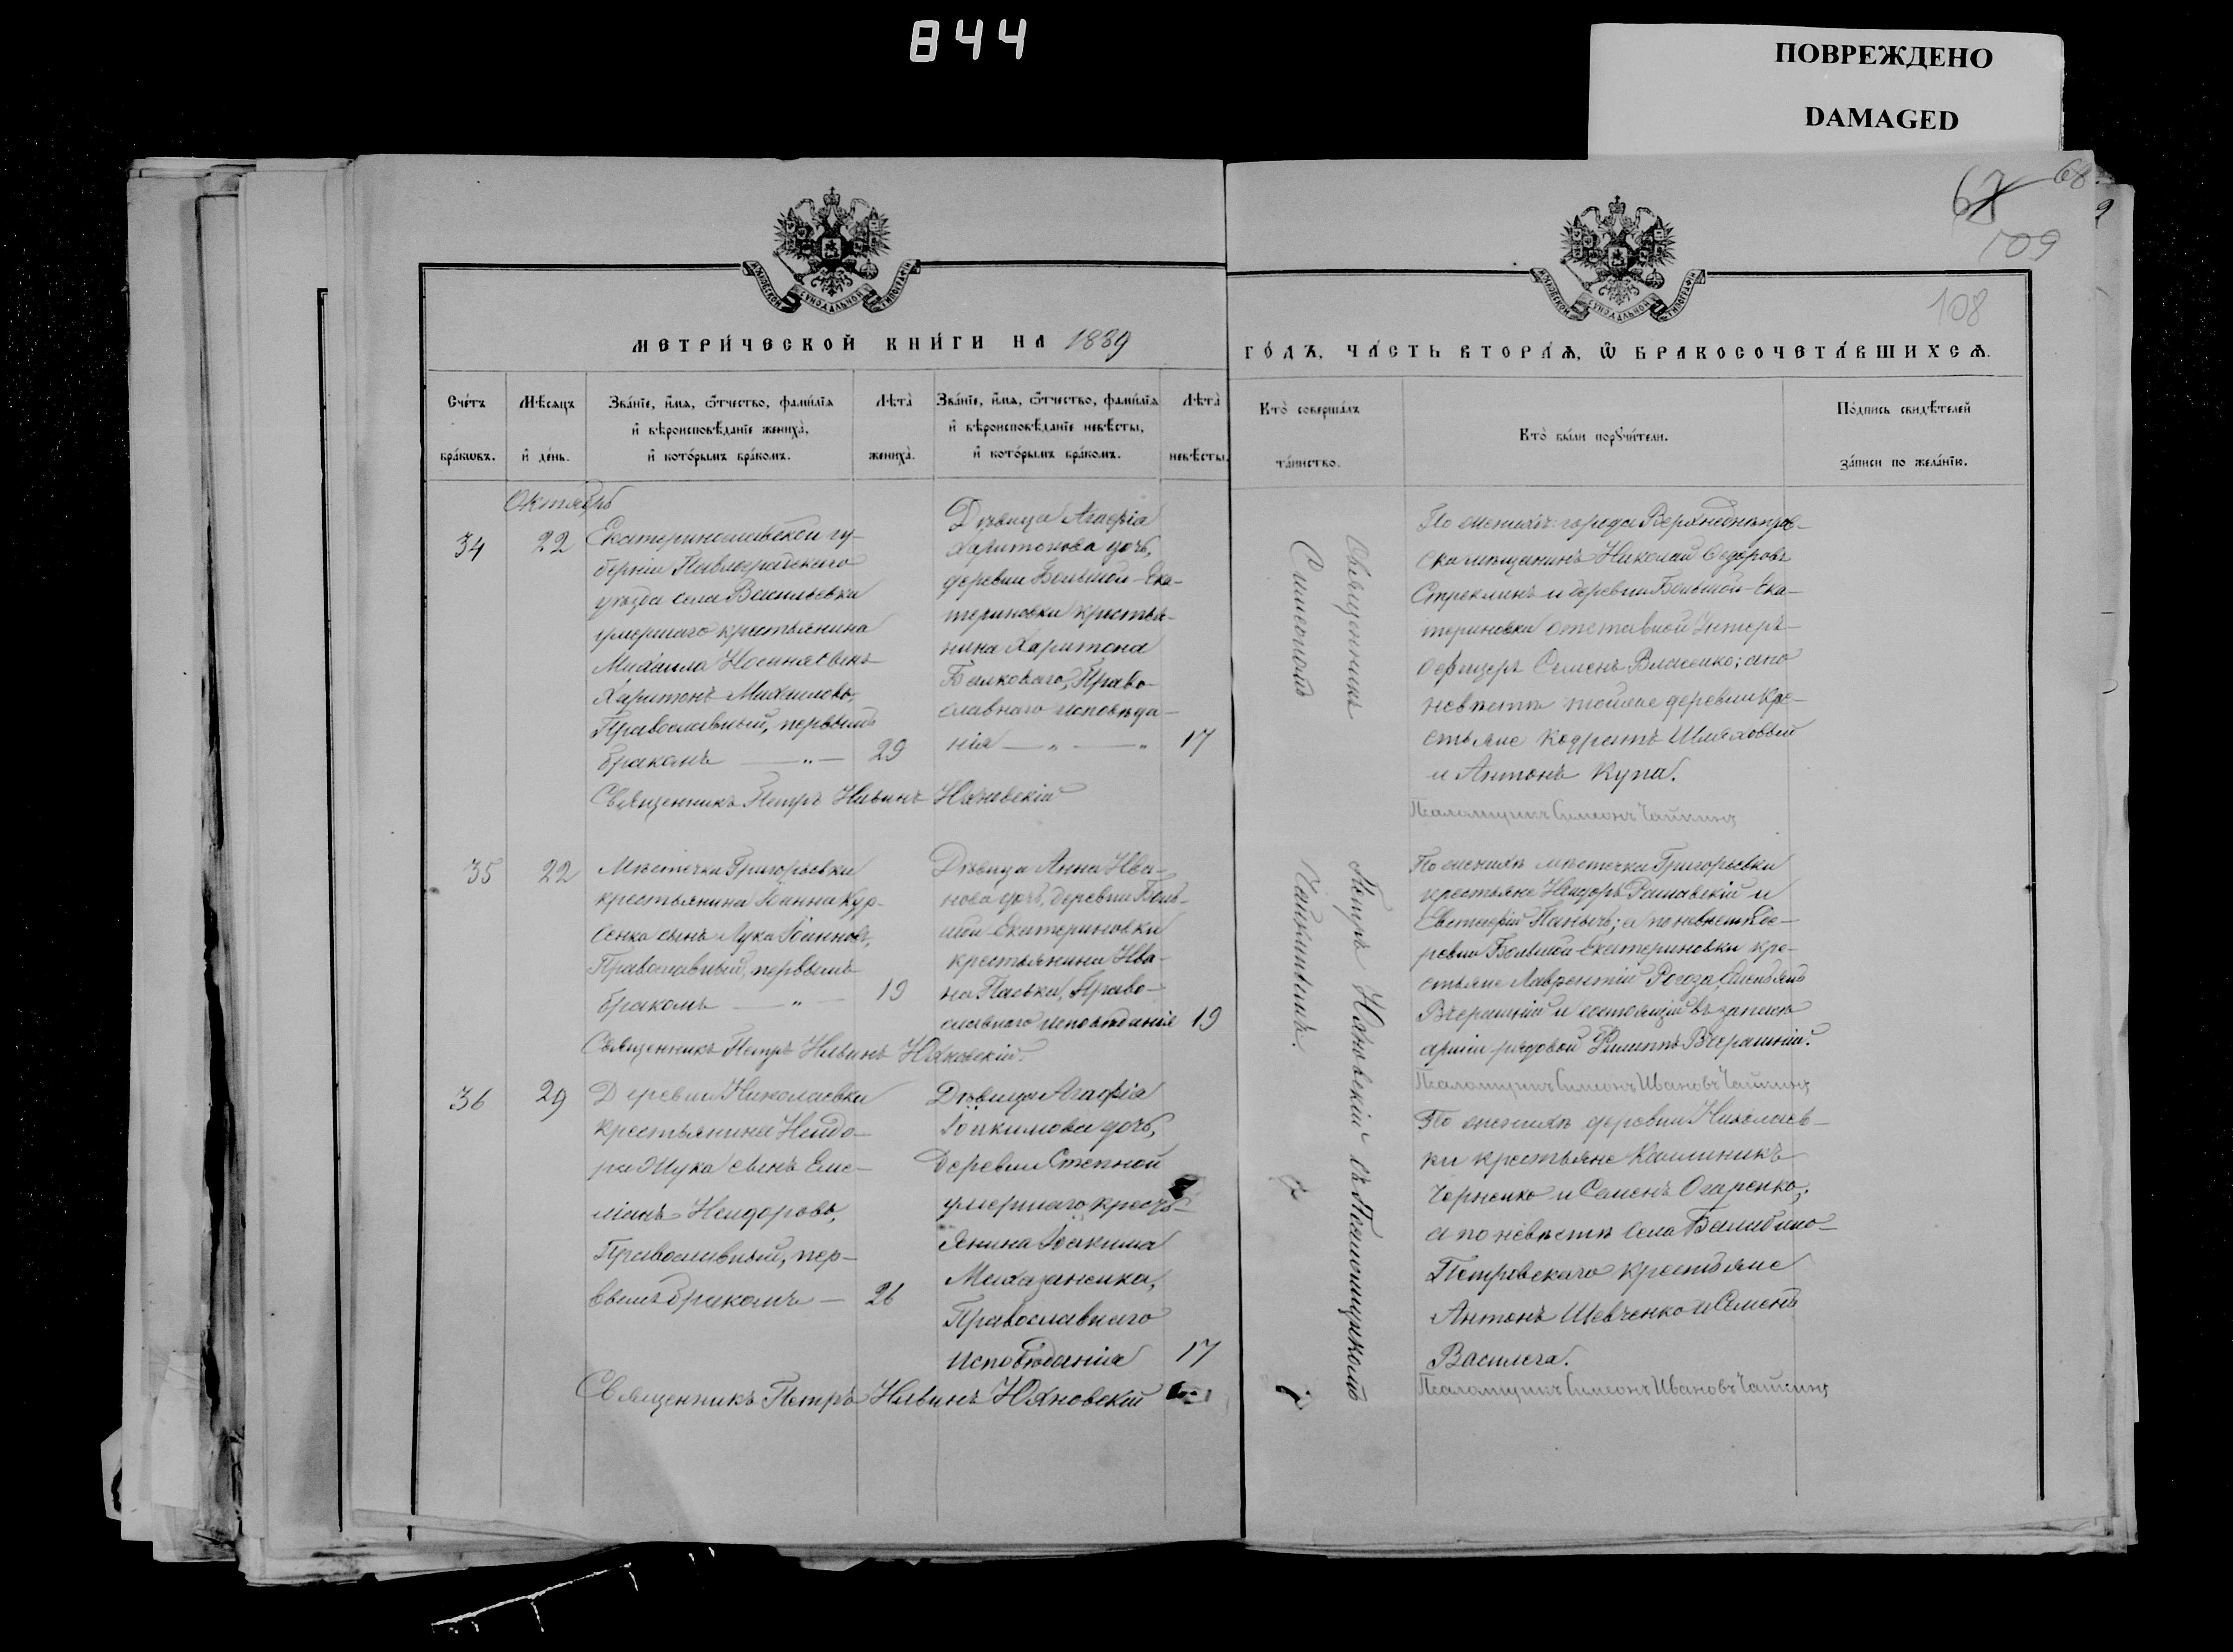 844
ПОВРЕЖДЕНО
DAMAGED
67 68
109
108
МЕТРИ́ЧЕСКОЙ КНИ́ГИ НА 1889
ГО́ДЪ, ЧА́СТЬ ВТОРА́Ѧ, Ѽ БРАКОСОЧЕТА́ВШИХСѦ.
Сче́тъ бра́ковъ.
Мѣсѧцъ и де́нь.
Зва́нїе, и҆́мѧ, ѻ҆́тчество, фами́лїѧ
и҆ вѣроисповѣ́данїе жениха̀,
и҆ кото́рымъ бра́комъ.
Лѣта̀ жениха̀.
Зва́нїе, и҆́мѧ, ѻ҆́тчество, фами́лїѧ
и҆ вѣроисповѣ́данїе невѣ́сты,
и҆ кото́рымъ бра́комъ.
Лѣта̀ невѣ́сты.
Кто̀ соверша́лъ
та́инство.
Кто̀ бы́ли порꙋчи́тели.
По́дпись свидѣ́телей
за́писи по жела́нїю.
Октябрь
34
22
Екатеринославской гу-
берніи Павлоградскаго
уѣзда села Васильевки
умершаго крестьянина
Михаила сынъ
Харитонъ Михаиловъ,
Православный, первымъ
бракомъ — „ —
29
Дѣвица Агафія
Харитонова дочь,
деревни Большой-Ека-
териновки крестья-
нина Харитона
Балковаго, Право-
славнаго исповѣда-
нія — „ — „
17
Священникъ Петръ Юхновскій
По женихѣ: города Верхнеднѣпров-
ска мѣщанинъ Николай Ѳедоровъ
Стреклинъ и деревни Большой-Ека-
териновки отставной Унтеръ-
офицеръ Семенъ Власенко; а по
невѣстѣ той же деревни кре-
стьяне Кодратъ Шляховый
и Антонъ Купа.
Псаломщикъ Симеонъ Чайкинъ
35
22
Мѣстечка Григорьевки
крестьянина Іоанна Кур-
сенка сынъ Лука Іоанновъ,
Православный, первымъ
бракомъ — „ —
19
Дѣвица Анна Ива-
нова дочь, деревни Боль-
шой-Екатериновки
крестьянина Ива-
на Паська, Право-
славнаго исповѣданія
19
Священникъ Петръ Юхновскій.
По женихѣ мѣстечка Григорьевки
крестьяне Исидоръ Рашавскій и
Евстафій Панычъ; а по невѣстѣ де-
ревни Большой-Екатериновки кре-
стьяне Лаврентій Рогоза, Емельянъ
Вчерашній и состоящій въ запасѣ
арміи рядовой Филиппъ Вчерашній.
Псаломщикъ Симеонъ Ивановъ Чайкинъ
36
29
Деревни Николаевки
крестьянина Исидо-
ра Жука сынъ Еме-
ліанъ Исидоровъ,
Православный, пер-
вымъ бракомъ —
26
Дѣвица Агафія
Іоакимова дочь,
Деревни Степной
умершаго кресть-
янина Іоакима
Махазаненка,
Православнаго
исповѣданія
17
Священникъ Петръ Юхновскій
По женихѣ деревни Николаев-
ки крестьяне Калинникъ
Черненко и Семенъ Огаренко;
а по невѣстѣ села Балабино-
Петровскаго крестьяне
Антонъ Шевченко и Семенъ
Василега.
Псаломщикъ Симеонъ Ивановъ Чайкинъ
Священникъ Петръ Юхновскій съ Псаломщикомъ
Симеономъ Чайкинымъ.